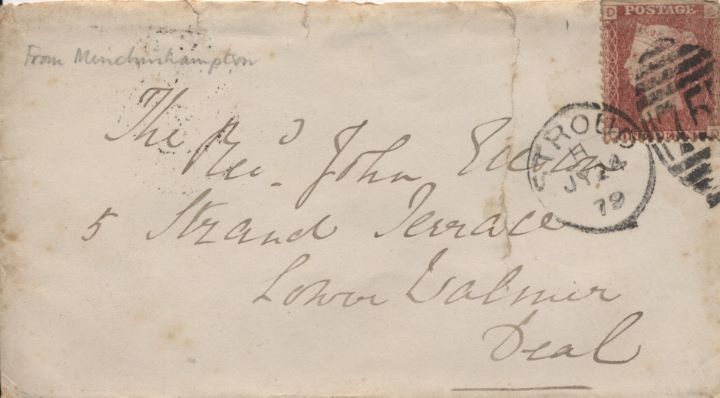 From Minchinhampton
POSTAGE
D
ONE PENNY
STROUD
H
JY 24
79
The Revd. John
5 Strand Terrace
Lower Walmer
Deal